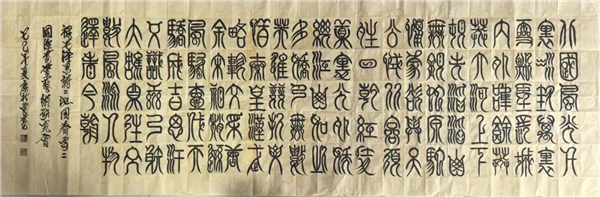 北國風光千
里冰封萬里
雪飄望長城
內外惟餘莽
莽大河上下
頓失滔滔山
舞銀蛇原馳
蠟象欲與天
公試比高須
晴日看紅裝
素裹分外妖
嬈江山如此
多嬌引無數
英雄競折腰
惜秦皇漢武
略輸文采唐
宗宋祖稍遜
風騷一代天
驕成吉思汗
只識彎弓射
大雕俱往矣
數風流人物
還看今朝
毛澤東詩詞沁園春雪
國際書畫藝術研究會
乙巳年